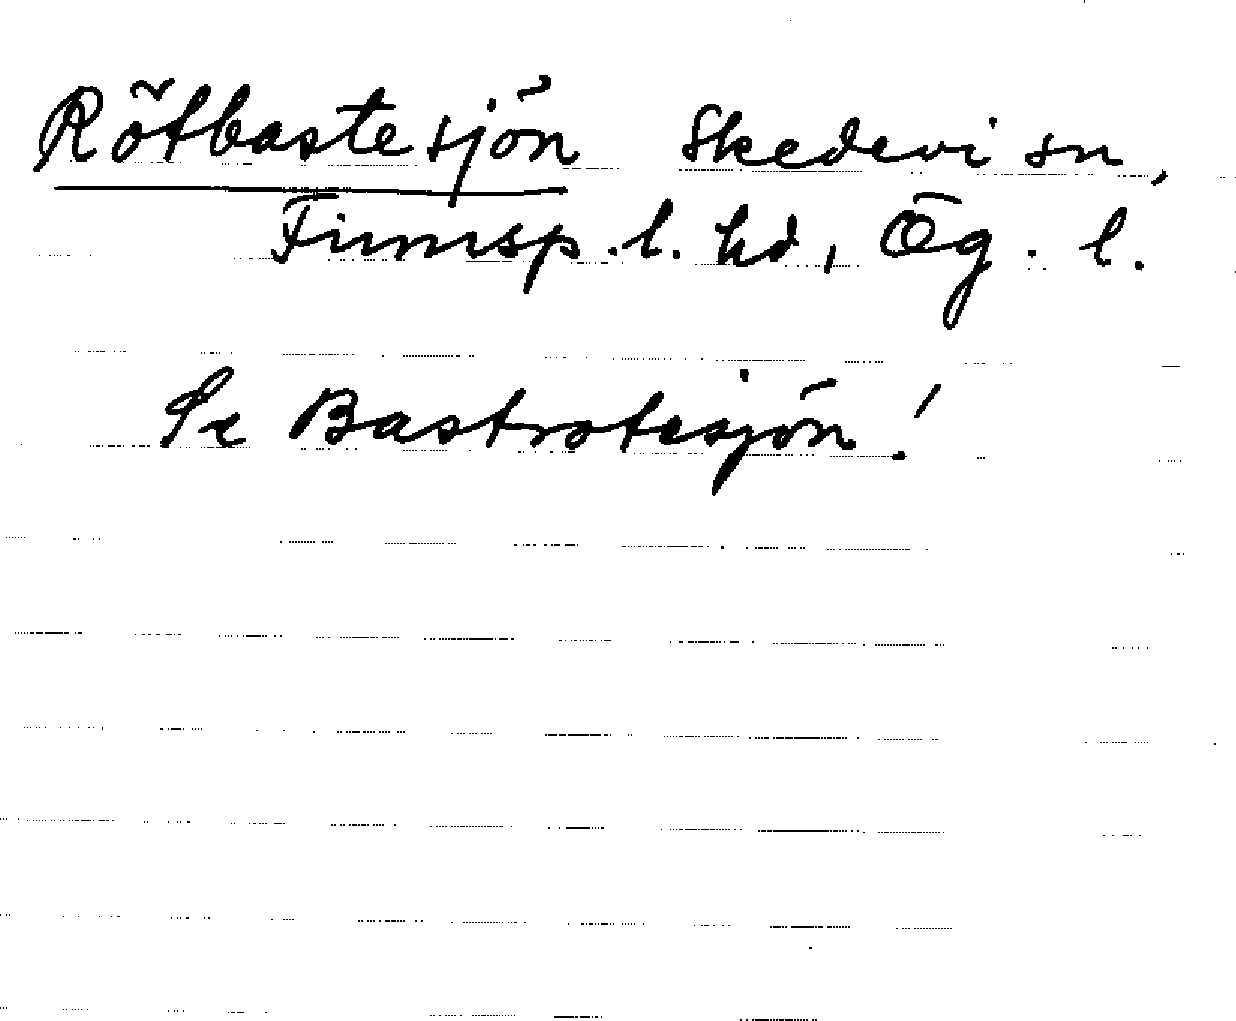 Rötbastesjön Skedevi sn,
Finnsp.l. hd, Ög. l.
Se Bastrotesjön!